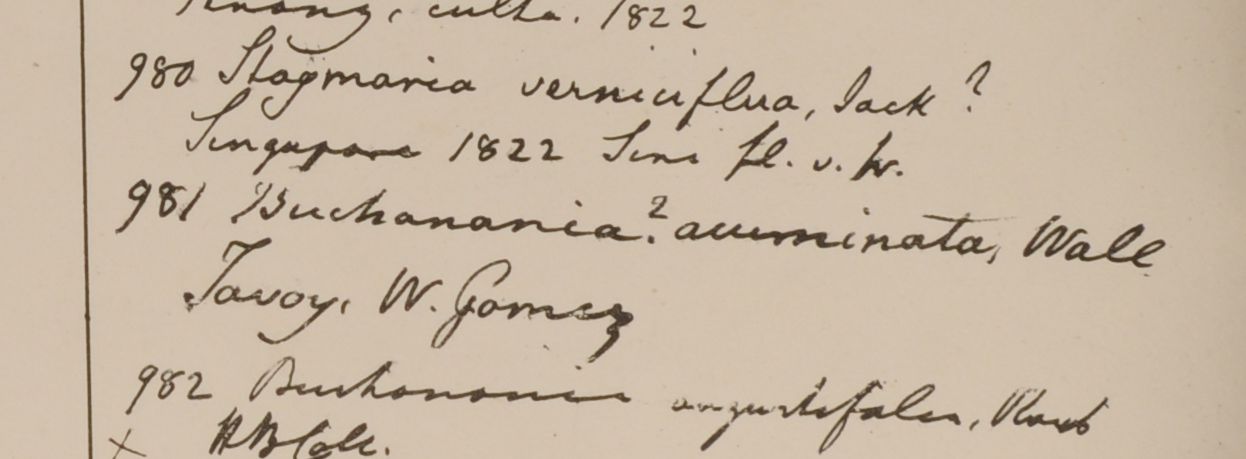 Penang, culta. 1822
980 Stagmaria verniciflua, Jack ?
Singapore 1822 Sine fl. v. fr.
981 Buchanania ? acuminata, Wall
Tavoy, W. Gomez
982 Buchanania angustifolia, Roxb
HBCalc.